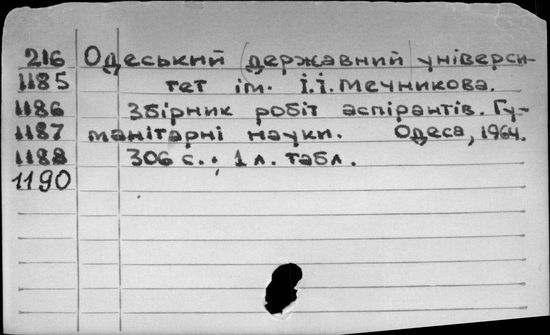 216 Одеський (державний) універси-
1185 тет ім. І.І.Мечникова.
1186 Збірник робіт аспірантів. Гу-
1187 манітарні науки. Одеса, 1964.
1188 306 с.; 1 л. табл.
1190